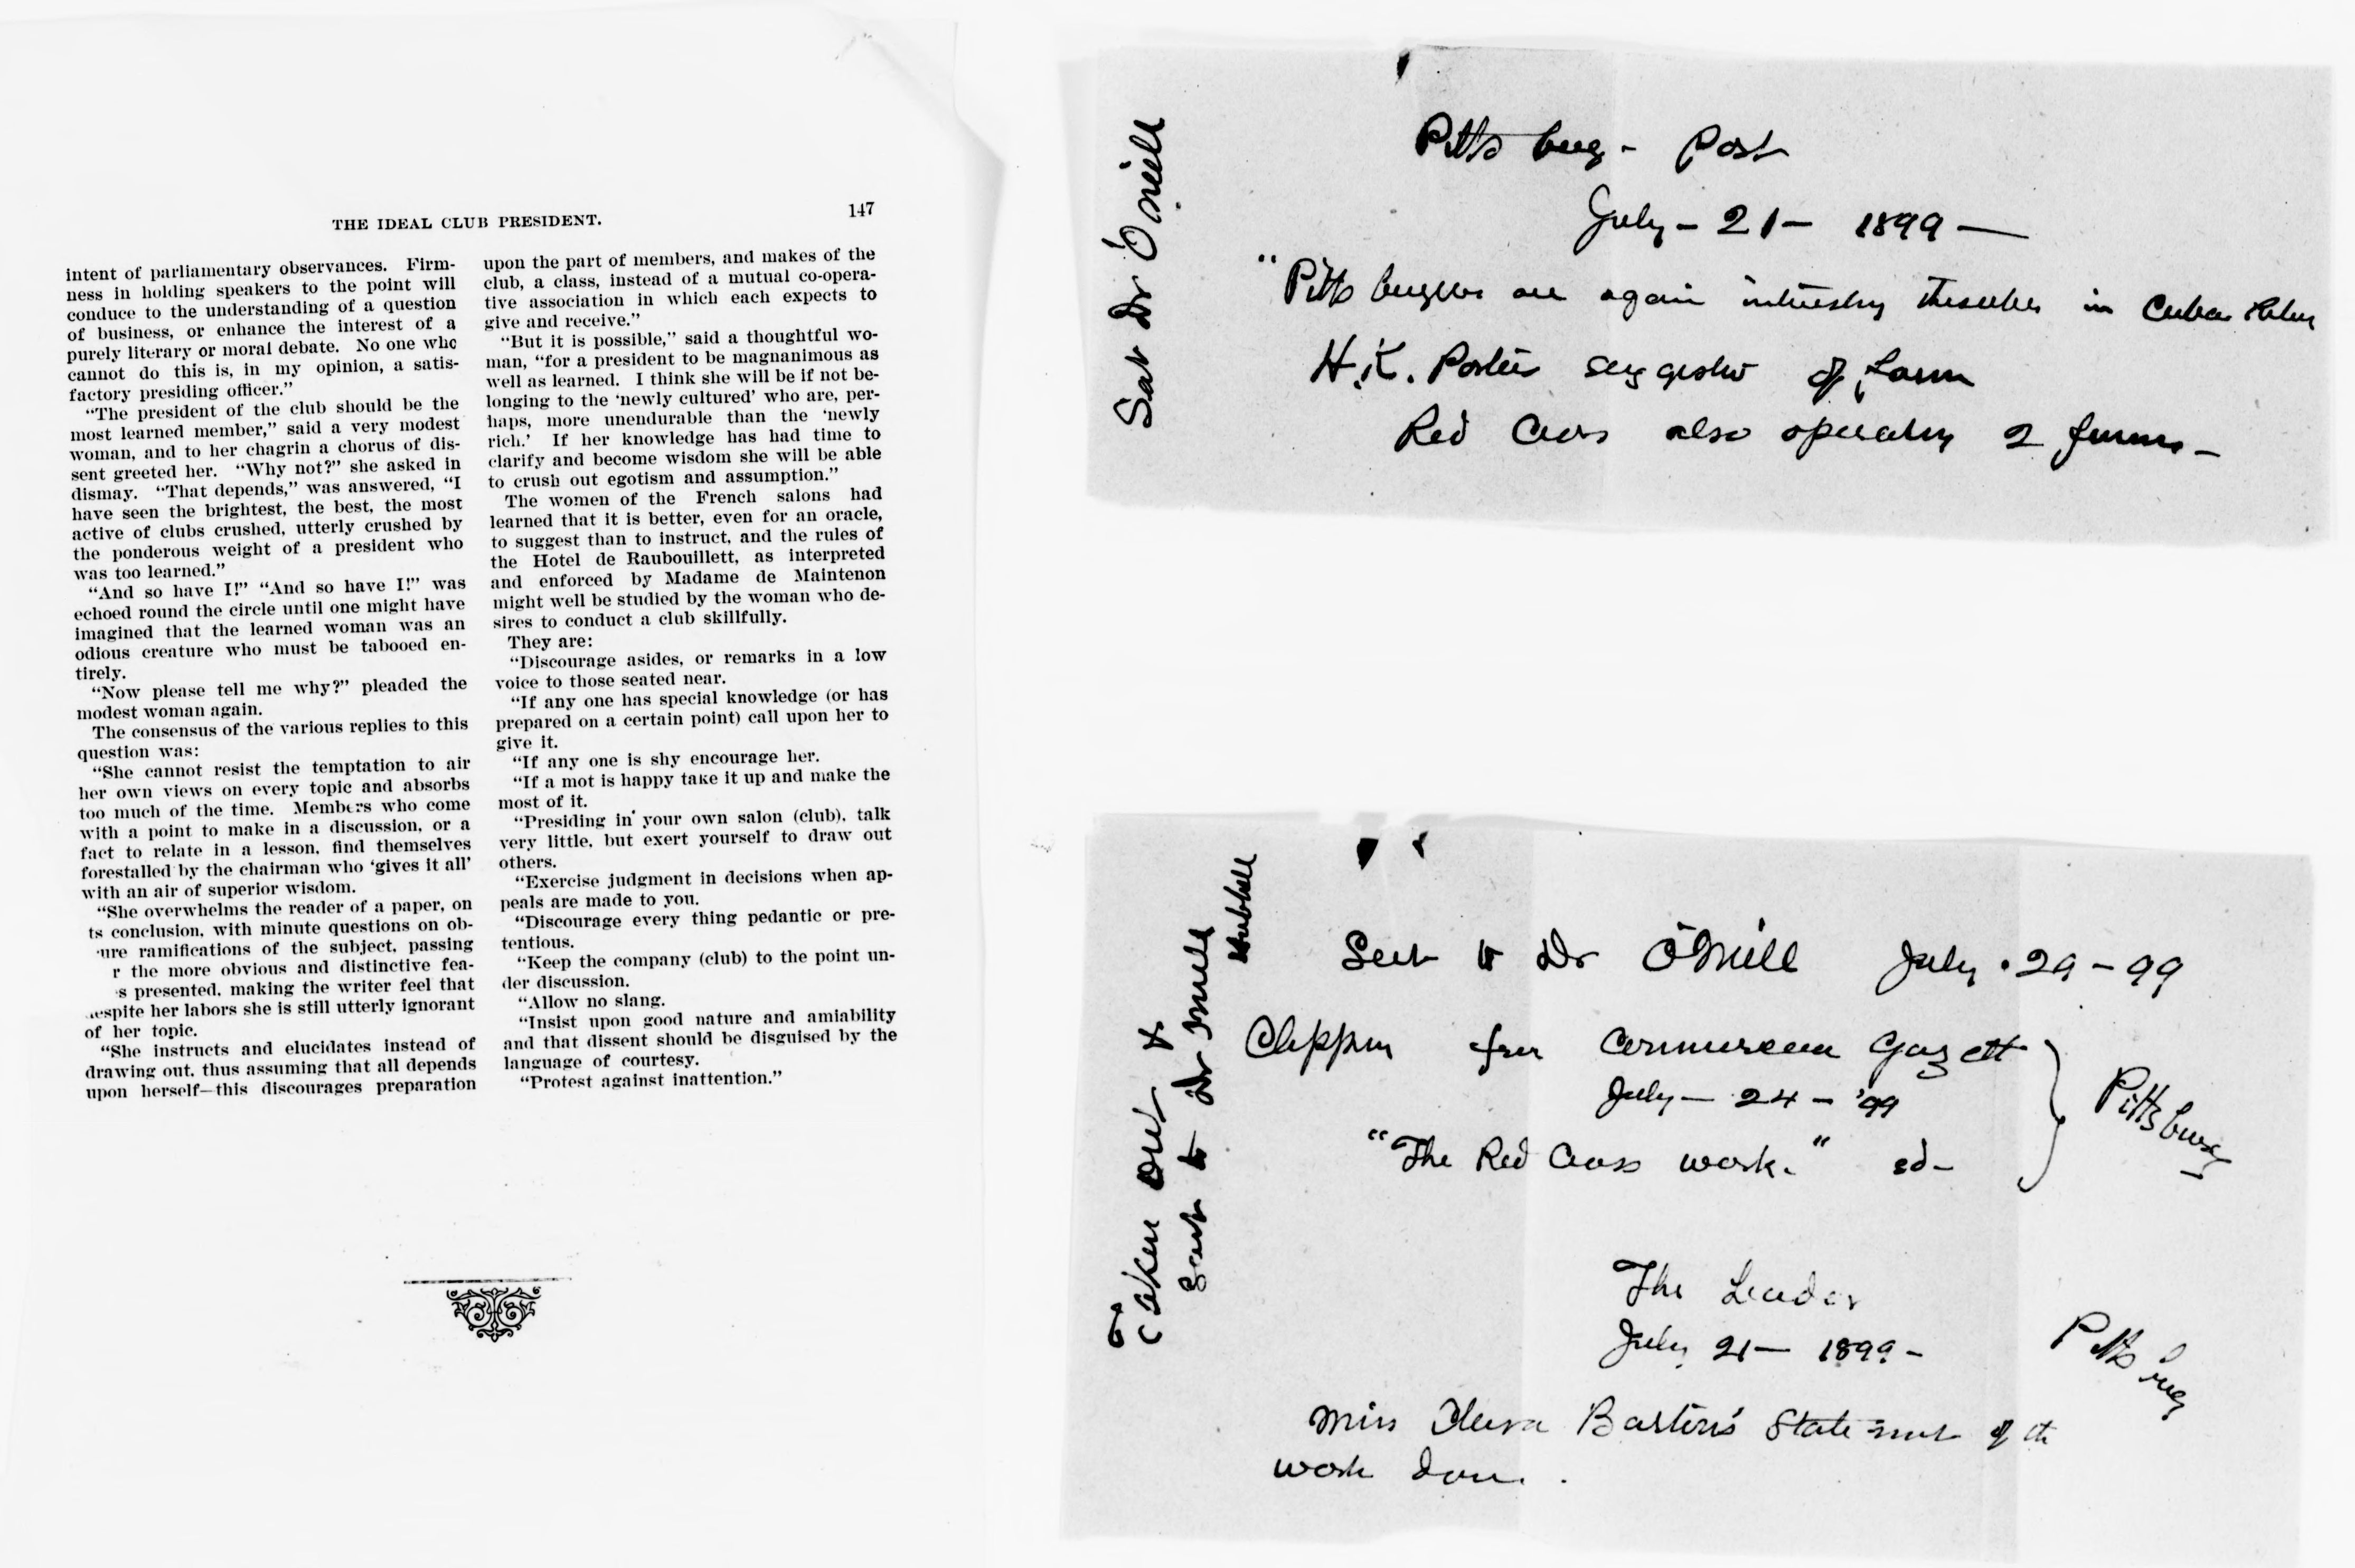 THE IDEAL CLUB PRESIDENT.
147
intent of parliamentary observances. Firm-
ness in holding speakers to the point will
conduce to the understanding of a question
of business, or enhance the interest of a
purely literary or moral debate. No one who
cannot do this is, in my opinion, a satis-
factory presiding officer.”
“The president of the club should be the
most learned member,” said a very modest
woman, and to her chagrin a chorus of dis-
sent greeted her. “Why not?” she asked in
dismay. “That depends,” was answered, “I
have seen the brightest, the best, the most
active of clubs crushed, utterly crushed by
the ponderous weight of a president who
was too learned.”
“And so have I!” “And so have I!” was
echoed round the circle until one might have
imagined that the learned woman was an
odious creature who must be tabooed en-
tirely.
“Now please tell me why?” pleaded the
modest woman again.
The consensus of the various replies to this
question was:
“She cannot resist the temptation to air
her own views on every topic and absorbs
too much of the time. Members who come
with a point to make in a discussion, or a
fact to relate in a lesson, find themselves
forestalled by the chairman who ‘gives it all’
with an air of superior wisdom.
“She overwhelms the reader of a paper, on
ts conclusion, with minute questions on ob-
ure ramifications of the subject, passing
r the more obvious and distinctive fea-
s presented, making the writer feel that
espite her labors she is still utterly ignorant
of her topic.
“She instructs and elucidates instead of
drawing out, thus assuming that all depends
upon herself—this discourages preparation
upon the part of members, and makes of the
club, a class, instead of a mutual co-opera-
tive association in which each expects to
give and receive.”
“But it is possible,” said a thoughtful wo-
man, “for a president to be magnanimous as
well as learned. I think she will be if not be-
longing to the ‘newly cultured’ who are, per-
haps, more unendurable than the ‘newly
rich.’ If her knowledge has had time to
clarify and become wisdom she will be able
to crush out egotism and assumption.”
The women of the French salons had
learned that it is better, even for an oracle,
to suggest than to instruct, and the rules of
the Hotel de Raubouillett, as interpreted
and enforced by Madame de Maintenon
might well be studied by the woman who de-
sires to conduct a club skillfully.
They are:
“Discourage asides, or remarks in a low
voice to those seated near.
“If any one has special knowledge (or has
prepared on a certain point) call upon her to
give it.
“If any one is shy encourage her.
“If a mot is happy take it up and make the
most of it.
“Presiding in your own salon (club), talk
very little, but exert yourself to draw out
others.
“Exercise judgment in decisions when ap-
peals are made to you.
“Discourage every thing pedantic or pre-
tentious.
“Keep the company (club) to the point un-
der discussion.
“Allow no slang.
“Insist upon good nature and amiability
and that dissent should be disguised by the
language of courtesy.
“Protest against inattention.”
Dr O'Neill
Pittsburg - Post
July - 21 - 1899 —
"Pittsburgers are again interesting themselves in Cuban
H.K. Porter of farm
Red Cross also operating 2 farms -
Taken out &
sent to Dr O'Neill
Hubbell
Sent to Dr O'Neill July . 29 - 99
Clipping from Commercial Gazett
July - 24 - '99
"The Red Cross work." ed -
Pittsburg
The Leader
July 21 - 1899 -
Pittsburg
Miss Clara Barton's Statement of the
work done.